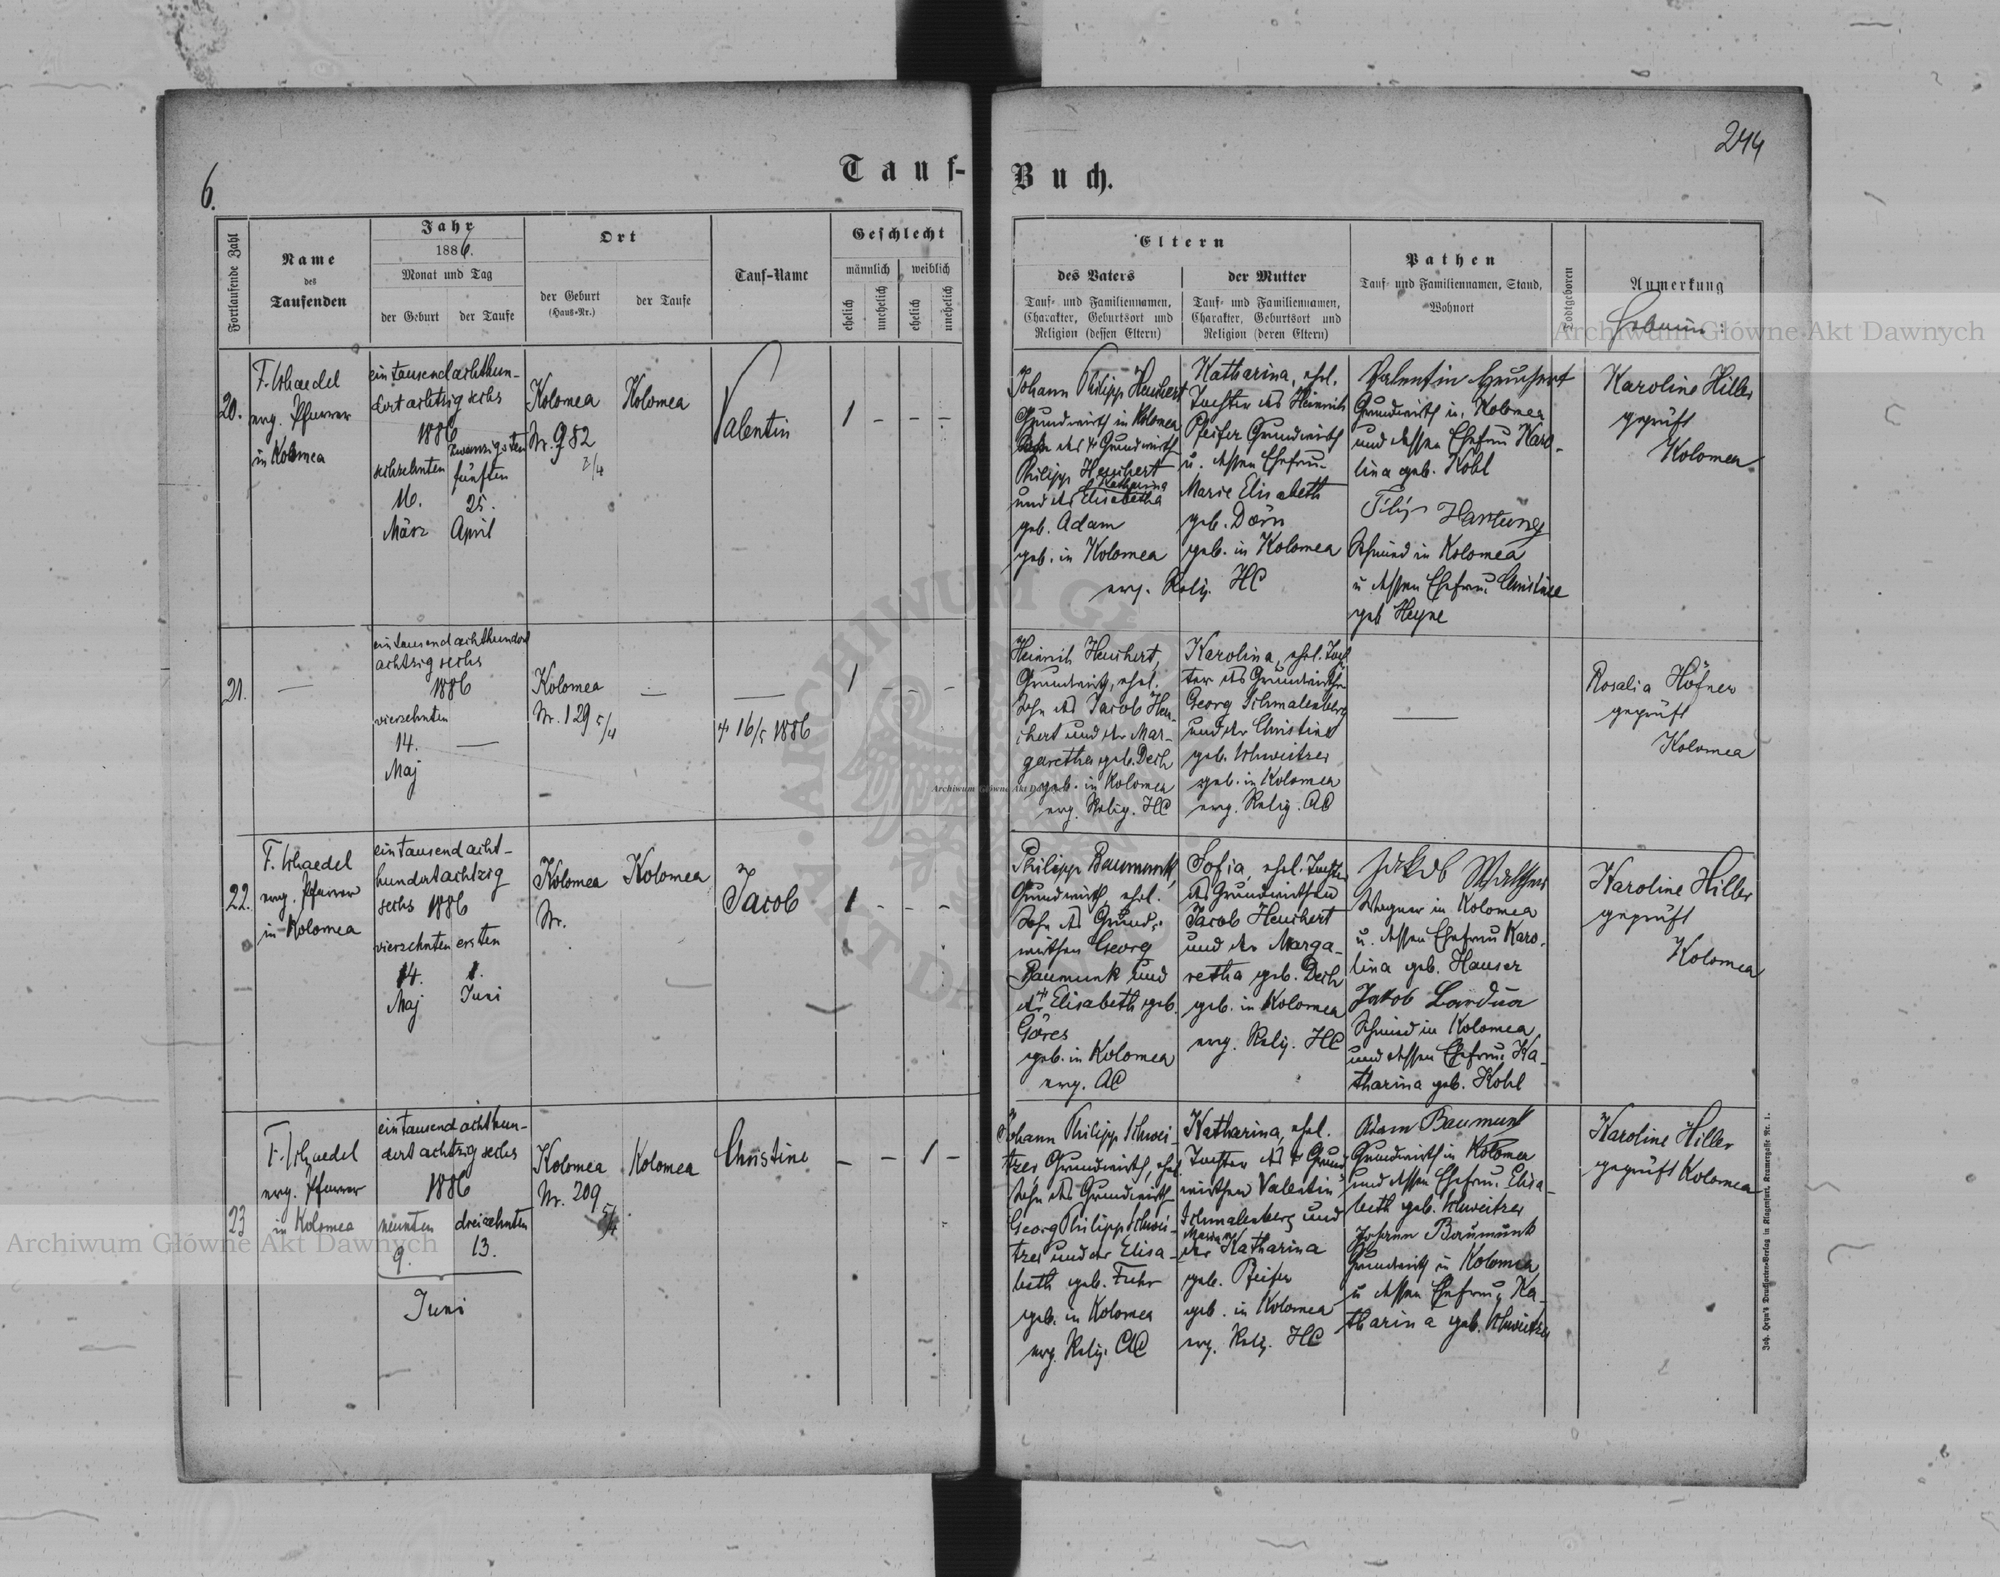 244
6.
Tauf-Buch.
Fortlaufende Zahl
Name
des
Taufenden
Jahr
1886.
Monat und Tag
der Geburt
der Taufe
Ort
der Geburt
(Haus-Nr.)
der Taufe
Tauf-Name
Geschlecht
männlich
weiblich
ehelich
unehelich
ehelich
unehelich
Eltern
des Vaters
Tauf- und Familiennamen,
Charakter, Geburtsort und
Religion (dessen Eltern)
der Mutter
Tauf- und Familiennamen,
Charakter, Geburtsort und
Religion (deren Eltern)
Pathen
Tauf- und Familiennamen, Stand,
Wohnort
Todtgeboren
Anmerkung
20.
F. Schaedel
evg. Pfarrer
in Kolomea
eintausendachthun-
dertachtzigsechs
1886
sechzehnten
16.
März
zwanzigsten
fünften
25.
April
Kolomea
Nr. 982
2/4
Kolomea
Valentin
1 - - -
Johann Philipp Heuchert
Grundwirth in Kolomea
Sohn des † Grundwirth
Philipp Heuchert
und der Elisabetha
Katharina
geb. Adam
geb. in Kolomea
Katharina, ehel.
Tochter des Heinrich
Pfeifer Grundwirth
u. dessen Ehefrau
Marie Elisabeth
geb. Dörn
geb. in Kolomea
evg. Relig. HC
Valentin Heuchert
Grundwirth in Kolomea
und dessen Ehefrau Karo-
lina geb. Kohl
Filip Hartung
Schmied in Kolomea
u. dessen Ehefrau Christine
geb Heyne
Karoline Hiller
geprüft
Kolomea
21.
eintausendachthundert
achtzigsechs
1886
vierzehnten
14.
Maj
Kolomea
Nr. 129 5/4
† 16/5 1886
1 - - -
Heinrich Heuchert,
Grundwirth, ehel.
Sohn des Jacob Heu-
chert und der Mar-
garetha geb. Dech
geb. in Kolomea
evg. Relig. HC
Karolina, ehel. Toch-
ter des Grundwirths
Georg Schmalenberg
und der Christine
geb. Schweitzer
geb. in Kolomea
evg. Relig. AC
Rosalia Höfner
geprüft
Kolomea
22.
F. Schaedel
evg. Pfarrer
in Kolomea
eintausendacht-
hundertachtzig
sechs 1886
vierzehnten
14.
Maj
ersten
1.
Juni
Kolomea
Nr.
Kolomea
Jacob
1 - - -
Philipp Baumunk,
Grundwirth, ehel.
Sohn des Grund-
wirthen Georg
Baumunk und
der Elisabeth geb.
Göres
geb. in Kolomea
evg. AC
Sofia, ehel. Tochter
des Grundwirthen
Jacob Heuchert
und der Marga-
retha geb. Dech
geb. in Kolomea
evg. Relig. HC
Jakob Walther
Wagner in Kolomea
u. dessen Ehefrau Karo-
lina geb. Hauser
Jakob Bardua
Schmied in Kolomea
und dessen Ehefrau Ka-
tharina geb. Kohl
Karoline Hiller
geprüft
Kolomea
23
F. Schaedel
evg. Pfarrer
in Kolomea
eintausendachthun-
dertachtzigsechs
1886
neunten
9.
dreizehnten
13.
Juni
Kolomea
Nr. 209
Kolomea
Christine
- - 1 -
Johann Philipp Schwei-
tzer Grundwirth, ehel.
Sohn des Grundwirth
Georg Philipp Schwei-
tzer und der Elisa-
beth geb. Fuhr
geb. in Kolomea
evg. Relig. AC
Katharina, ehel.
Tochter des † Grund-
wirthen Valentin
Schmalenberg und
der Katharina
geb. Pfeifer
geb. in Kolomea
evg. Relig. HC
Adam Baumunk
Grundwirth in Kolomea
und dessen Ehefrau Elisa-
beth geb. Schweitzer
Johann Baumunk
Grundwirth in Kolomea
u dessen Ehefrau Ka-
tharina geb. Schweitzer
Karoline Hiller
geprüft Kolomea
Joh. Heyn's Drucksorten-Verlag in Klagenfurt, Kramergasse Nr. 1.
Archiwum Główne Akt Dawnych
Archiwum Główne Akt Dawnych
Archiwum Główne Akt Dawnych